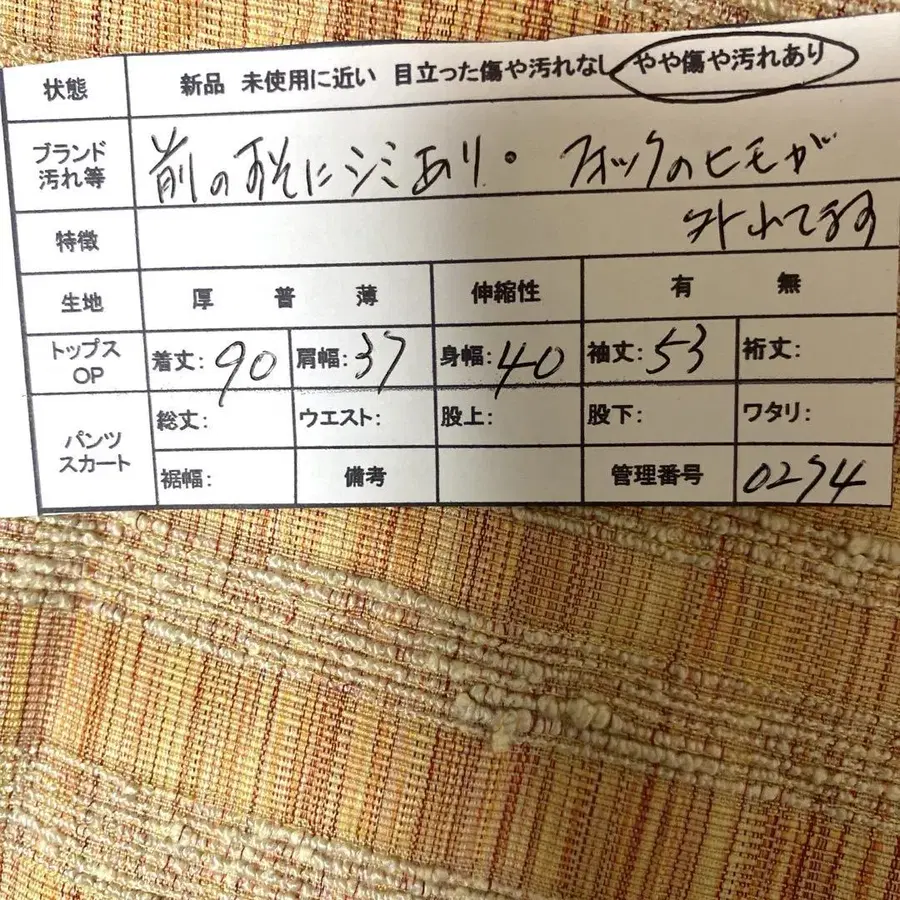 状態 新品 未使用に近い 目立った傷や汚れなし やや傷や汚れあり
ブランド
汚れ等
前のすそにシミあり。 フォックのヒモが
外れてます
特徴
生地 厚 普 薄 伸縮性 有 無
トップス
OP
着丈:90 肩幅:37 身幅:40 袖丈:53 裄丈:
パンツ
スカート
総丈: ウエスト: 股上: 股下: ワタリ:
裾幅: 備考 管理番号 0274